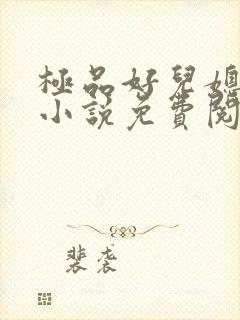 極品好兒媳
小說免費閱
裴袭